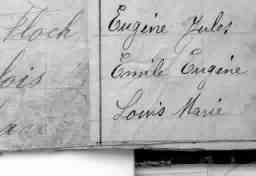 Flock Eugène Jules
lois Emile Eugène
Louis Marie